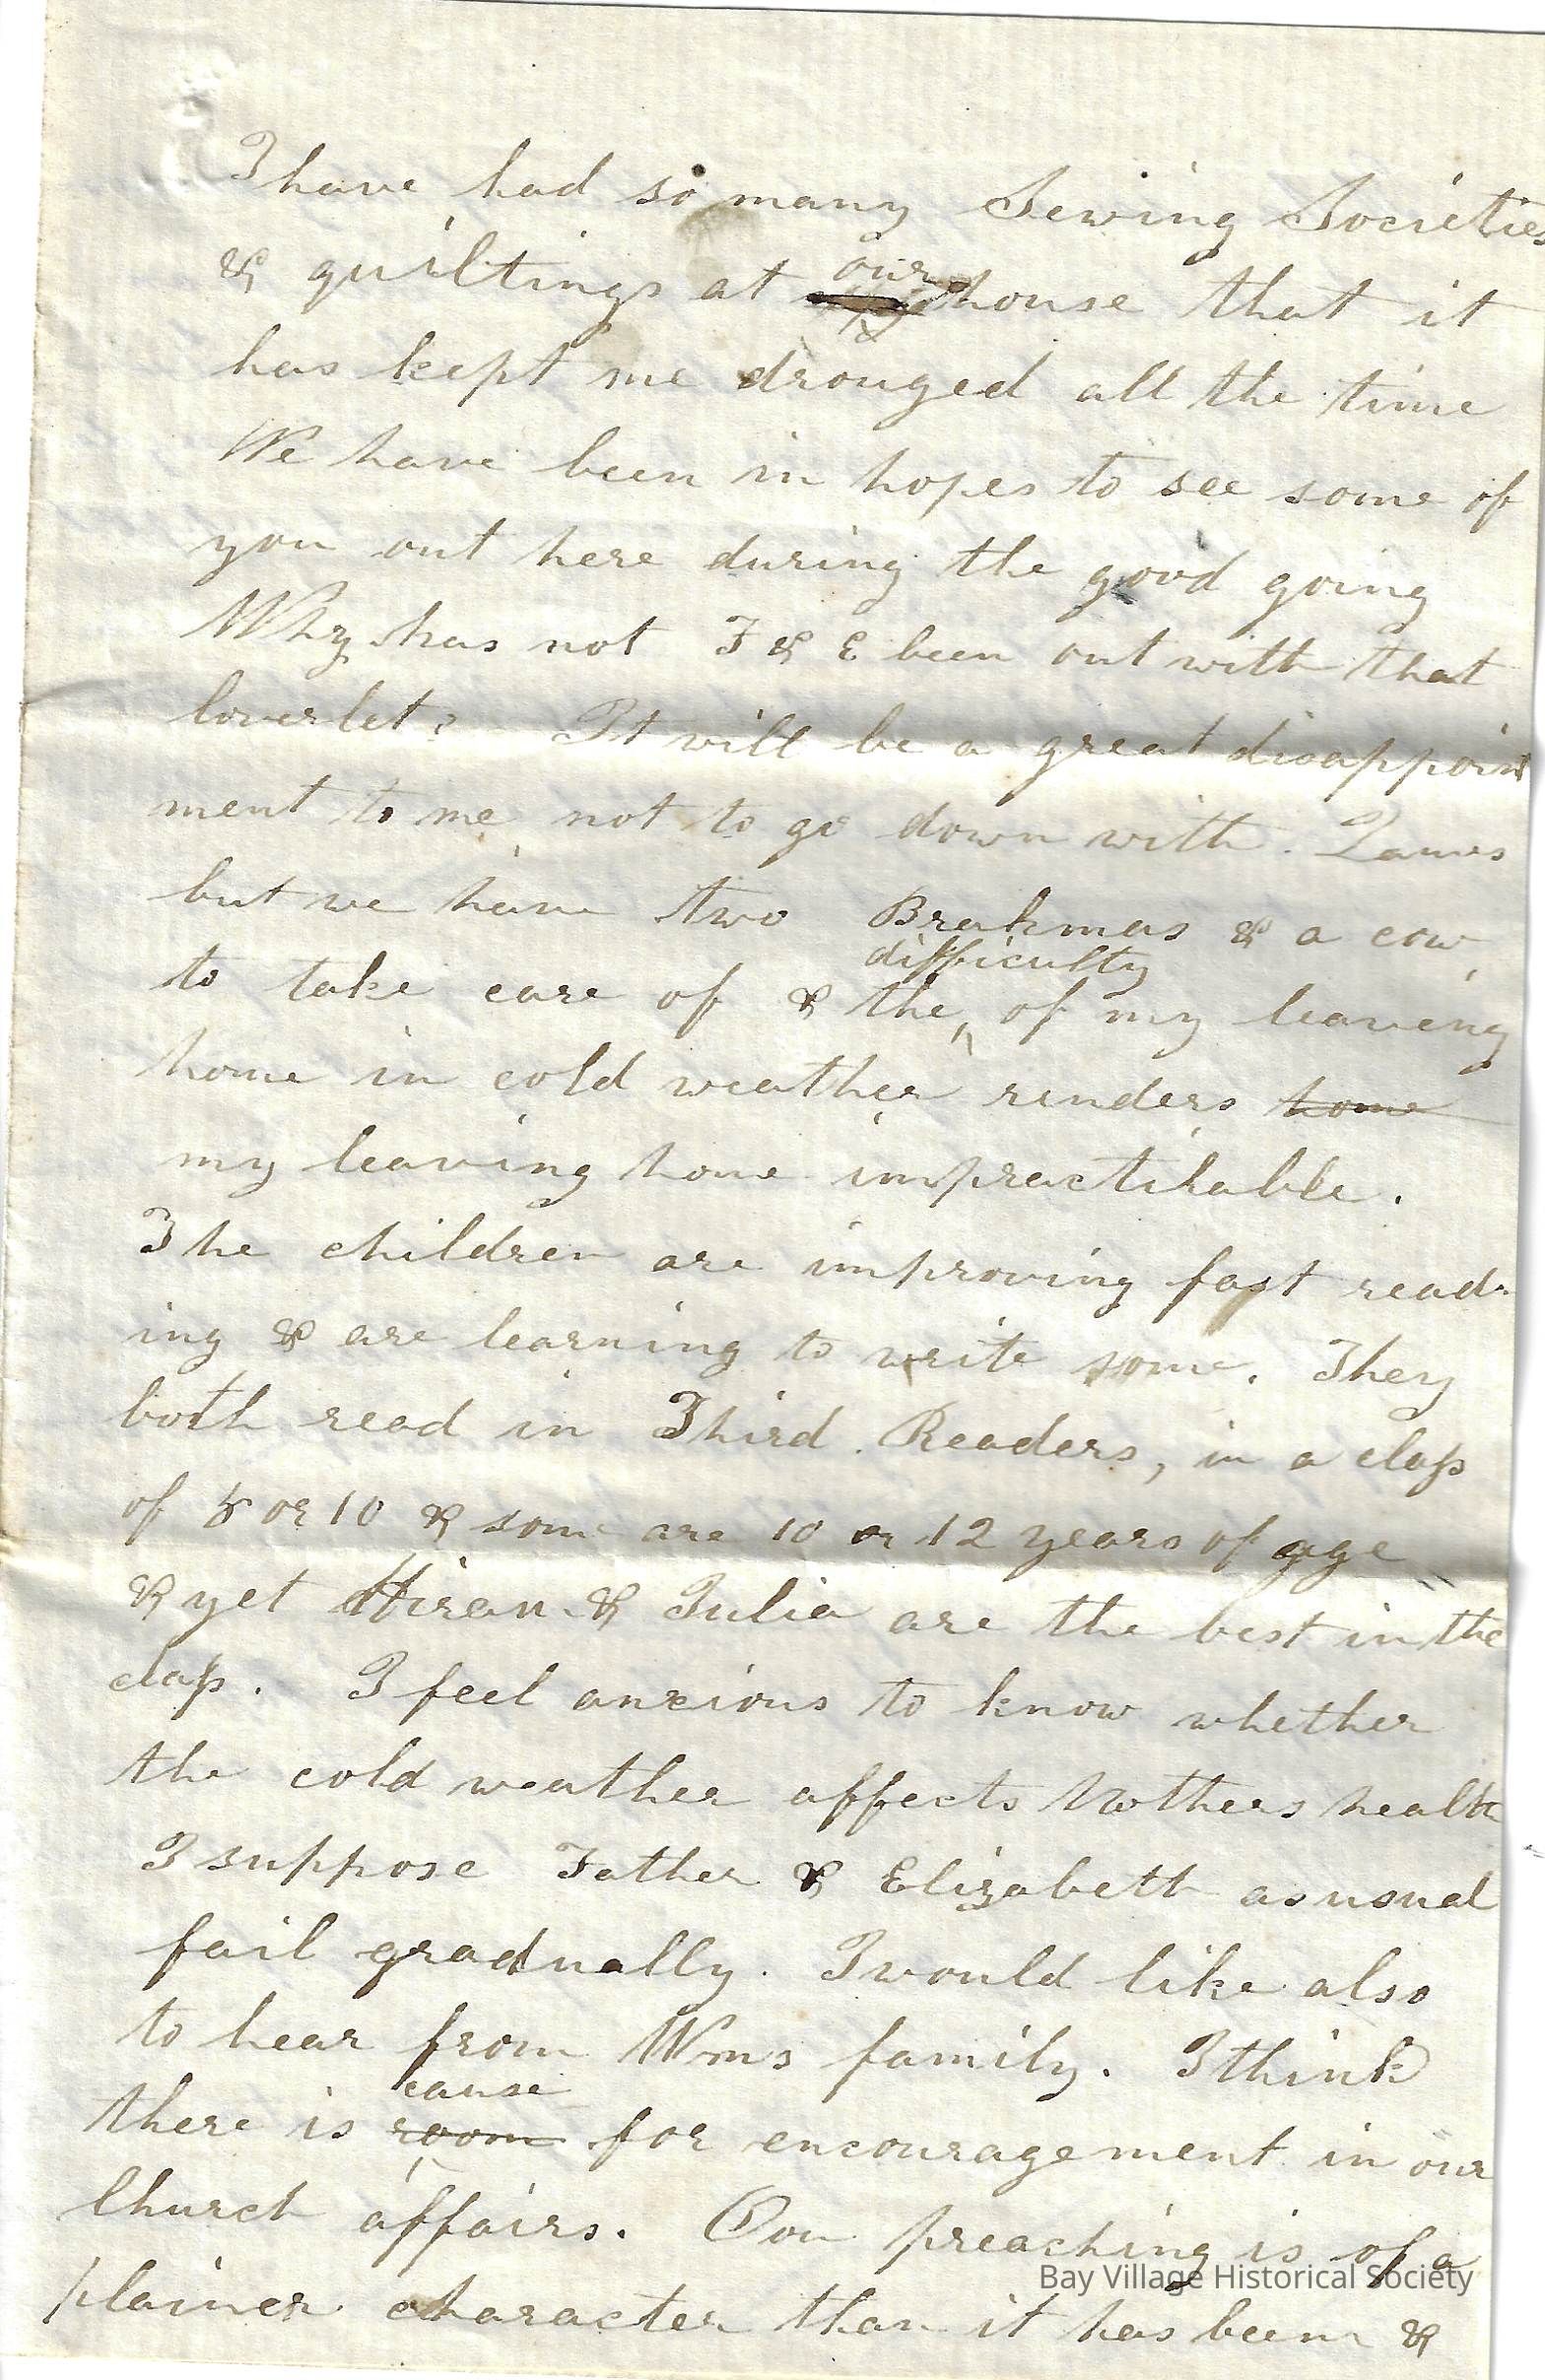 I have had so many Sewing Societies
& quiltings at our house that it
has kept me drouged all the time
We have been in hopes to see some of
you out here during the good going
Why has not F & E been out with that
Coverlet? It will be a great disappoint
ment to me not to go down with
but we have two Brahmas & a cow
to take care of & the difficulty of my leaving
home in cold weather renders home
my leaving home impractikable.
The children are improving fast read-
ing & are learning to write some. They
both read in Third Readers, in a class
of 8 or 10 & some are 10 or 12 years of age
& yet Hiram & Julia are the best in the
class. I feel anxious to know whether
the cold weather affects Mothers health
I suppose Father & Elizabeth as usual
fail gradually. I would like also
to hear from Wms family. I think
there is room cause for encouragement in our
Church affairs. Our preaching is of a
plainer character than it has been &
Bay Village Historical Society